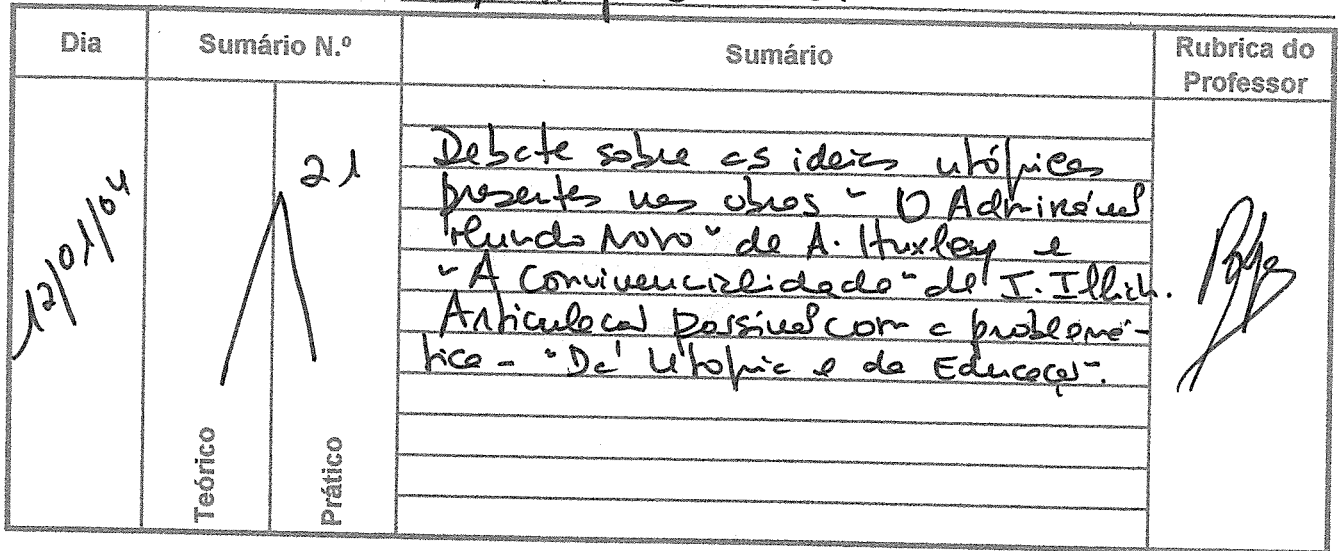 Dia
Sumário N.º
Sumário
Rubrica do
Professor
12/01/04
21
Debate sobre as ideias utópicas
presentes nas obras "O Admirável
Mundo Novo" de A. Huxley e
"A Convivencialidade" de I. Illich.
Articulação possível com a problemá-
tica - "Da Utopia e da Educação".
Teórico
Prático